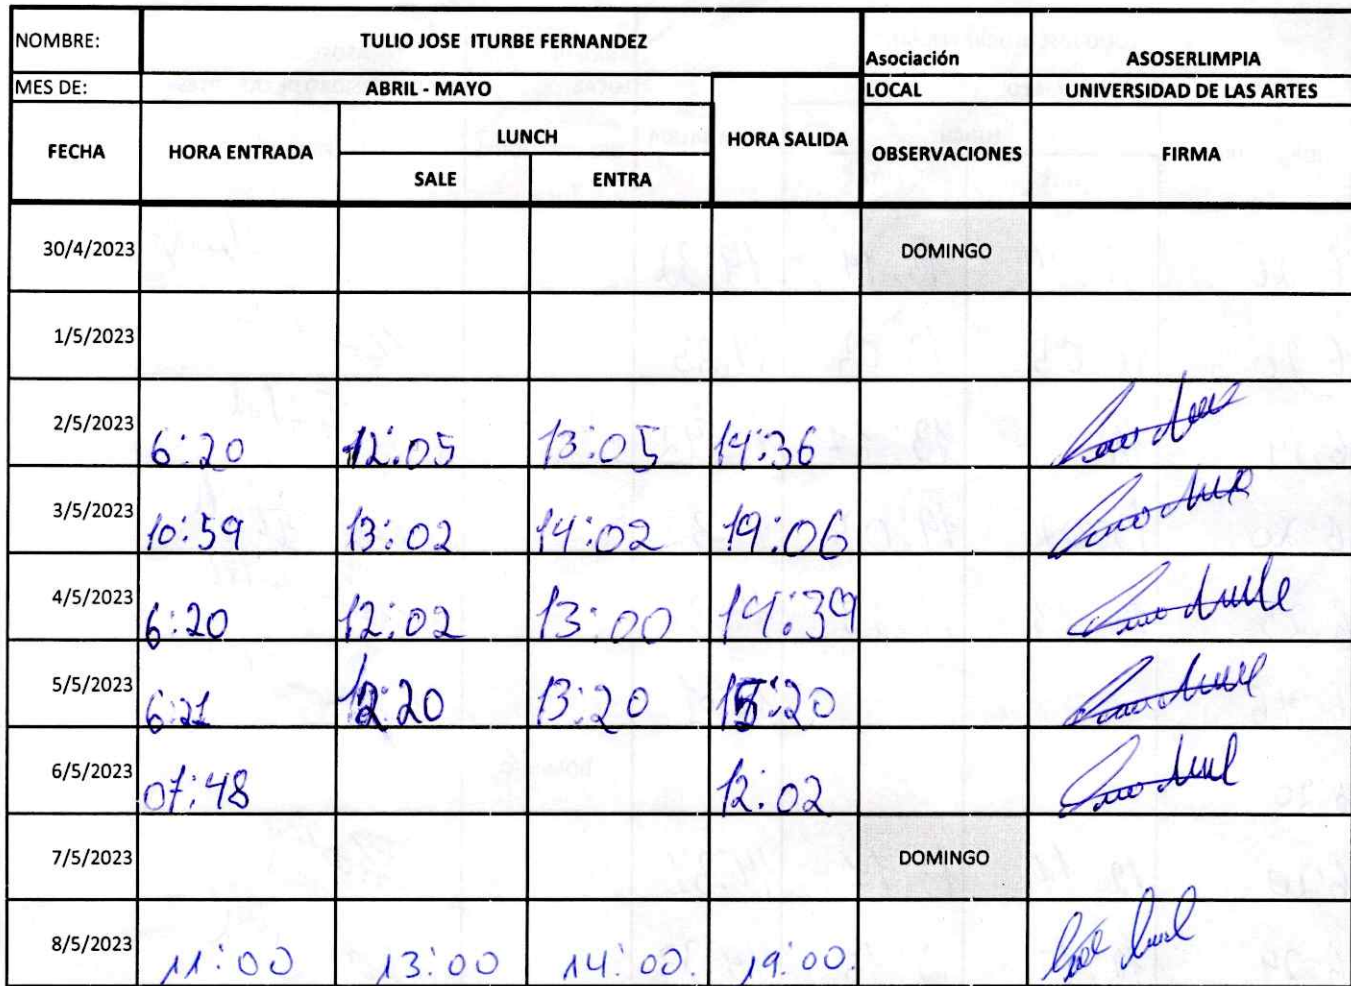 NOMBRE: TULIO JOSE ITURBE FERNANDEZ Asociación ASOSERLIMPIA
MES DE: ABRIL - MAYO LOCAL UNIVERSIDAD DE LAS ARTES
FECHA HORA ENTRADA LUNCH HORA SALIDA OBSERVACIONES FIRMA
SALE ENTRA
30/4/2023 DOMINGO
1/5/2023
2/5/2023 6:20 12:05 13:05 14:36
3/5/2023 10:59 13:02 14:02 19:06
4/5/2023 6:20 12:02 13:00 14:39
5/5/2023 6:21 12:20 13:20 15:20
6/5/2023 07:48 12:02
7/5/2023 DOMINGO
8/5/2023 11:00 13:00 14:00. 19:00.